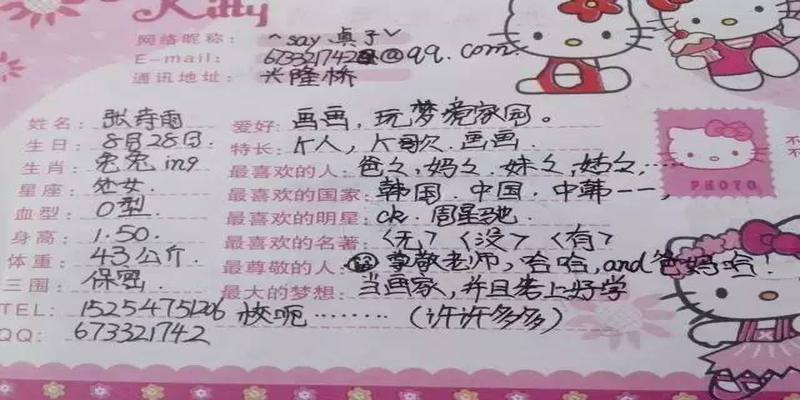 Kitty
网络昵称： ^say 贞子~
E-mail： 673321742@qq.com.
通讯地址： 兴隆桥
姓名： 张诗雨
生日： 8月28日.
生肖： 兔兔ing
星座： 处女.
血型： O型
身高： 1.50.
体重： 43公斤.
三围： 保密.
TEL： 15254751206
QQ： 673321742
爱好： 画画，玩梦爱家园。
特长： K人，K歌.画画.
最喜欢的人： 爸爸,妈妈,妹妹,姑姑……
最喜欢的国家： 韩国.中国.中韩一一,
最喜欢的明星： 周星驰.
最喜欢的名著：〈无〉〈没〉〈有〉
最尊敬的人： 尊敬老师，哈哈,and爸妈哈!
最大的梦想： 当画家,并且考上好学
校呢········（许许多多）
PHOTO